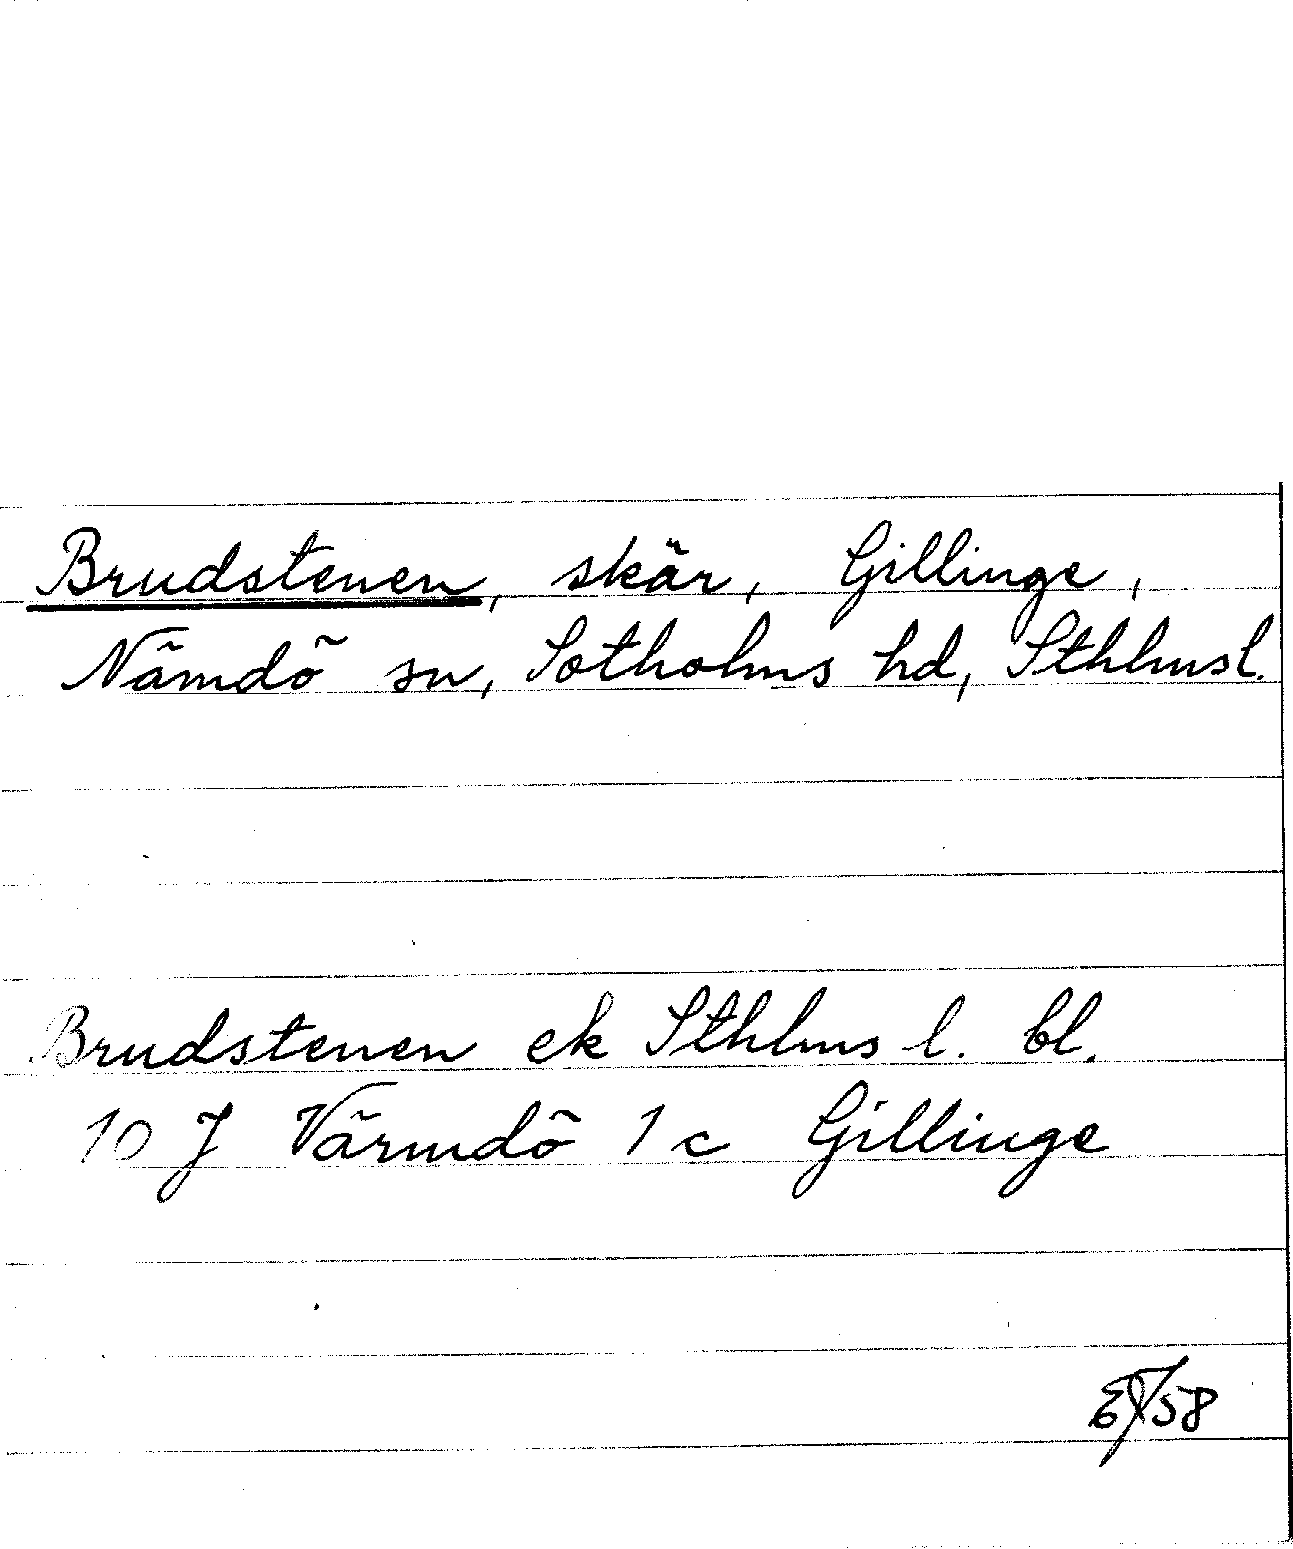 Brudstenen, skär, Gillinge,
Nämdö sn, Sotholms hd, Sthlmsl.
Brudstenen ek Sthlms l. bl.
10 J Värmdö 1 c Gillinge
58